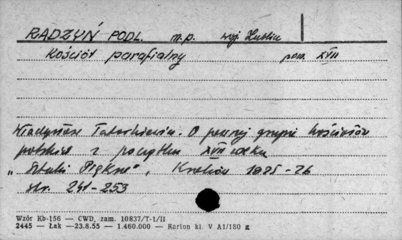 RADZYŃ PODL. m.p. woj. Lublin
Kościół parafialny pocz. XVII
Władysław Tatarkiewicz. O pewnej grupie kościołów
polskich z początku XVII wieku
"Sztuki Piękne", Kraków 1925-26
str. 241-253
Wzór Kb-156 — CWD, zam. 10837/T-1/II
2445 — Łak — 23.8.55 — 1.460.000 — Karton kl. V A1/180 g